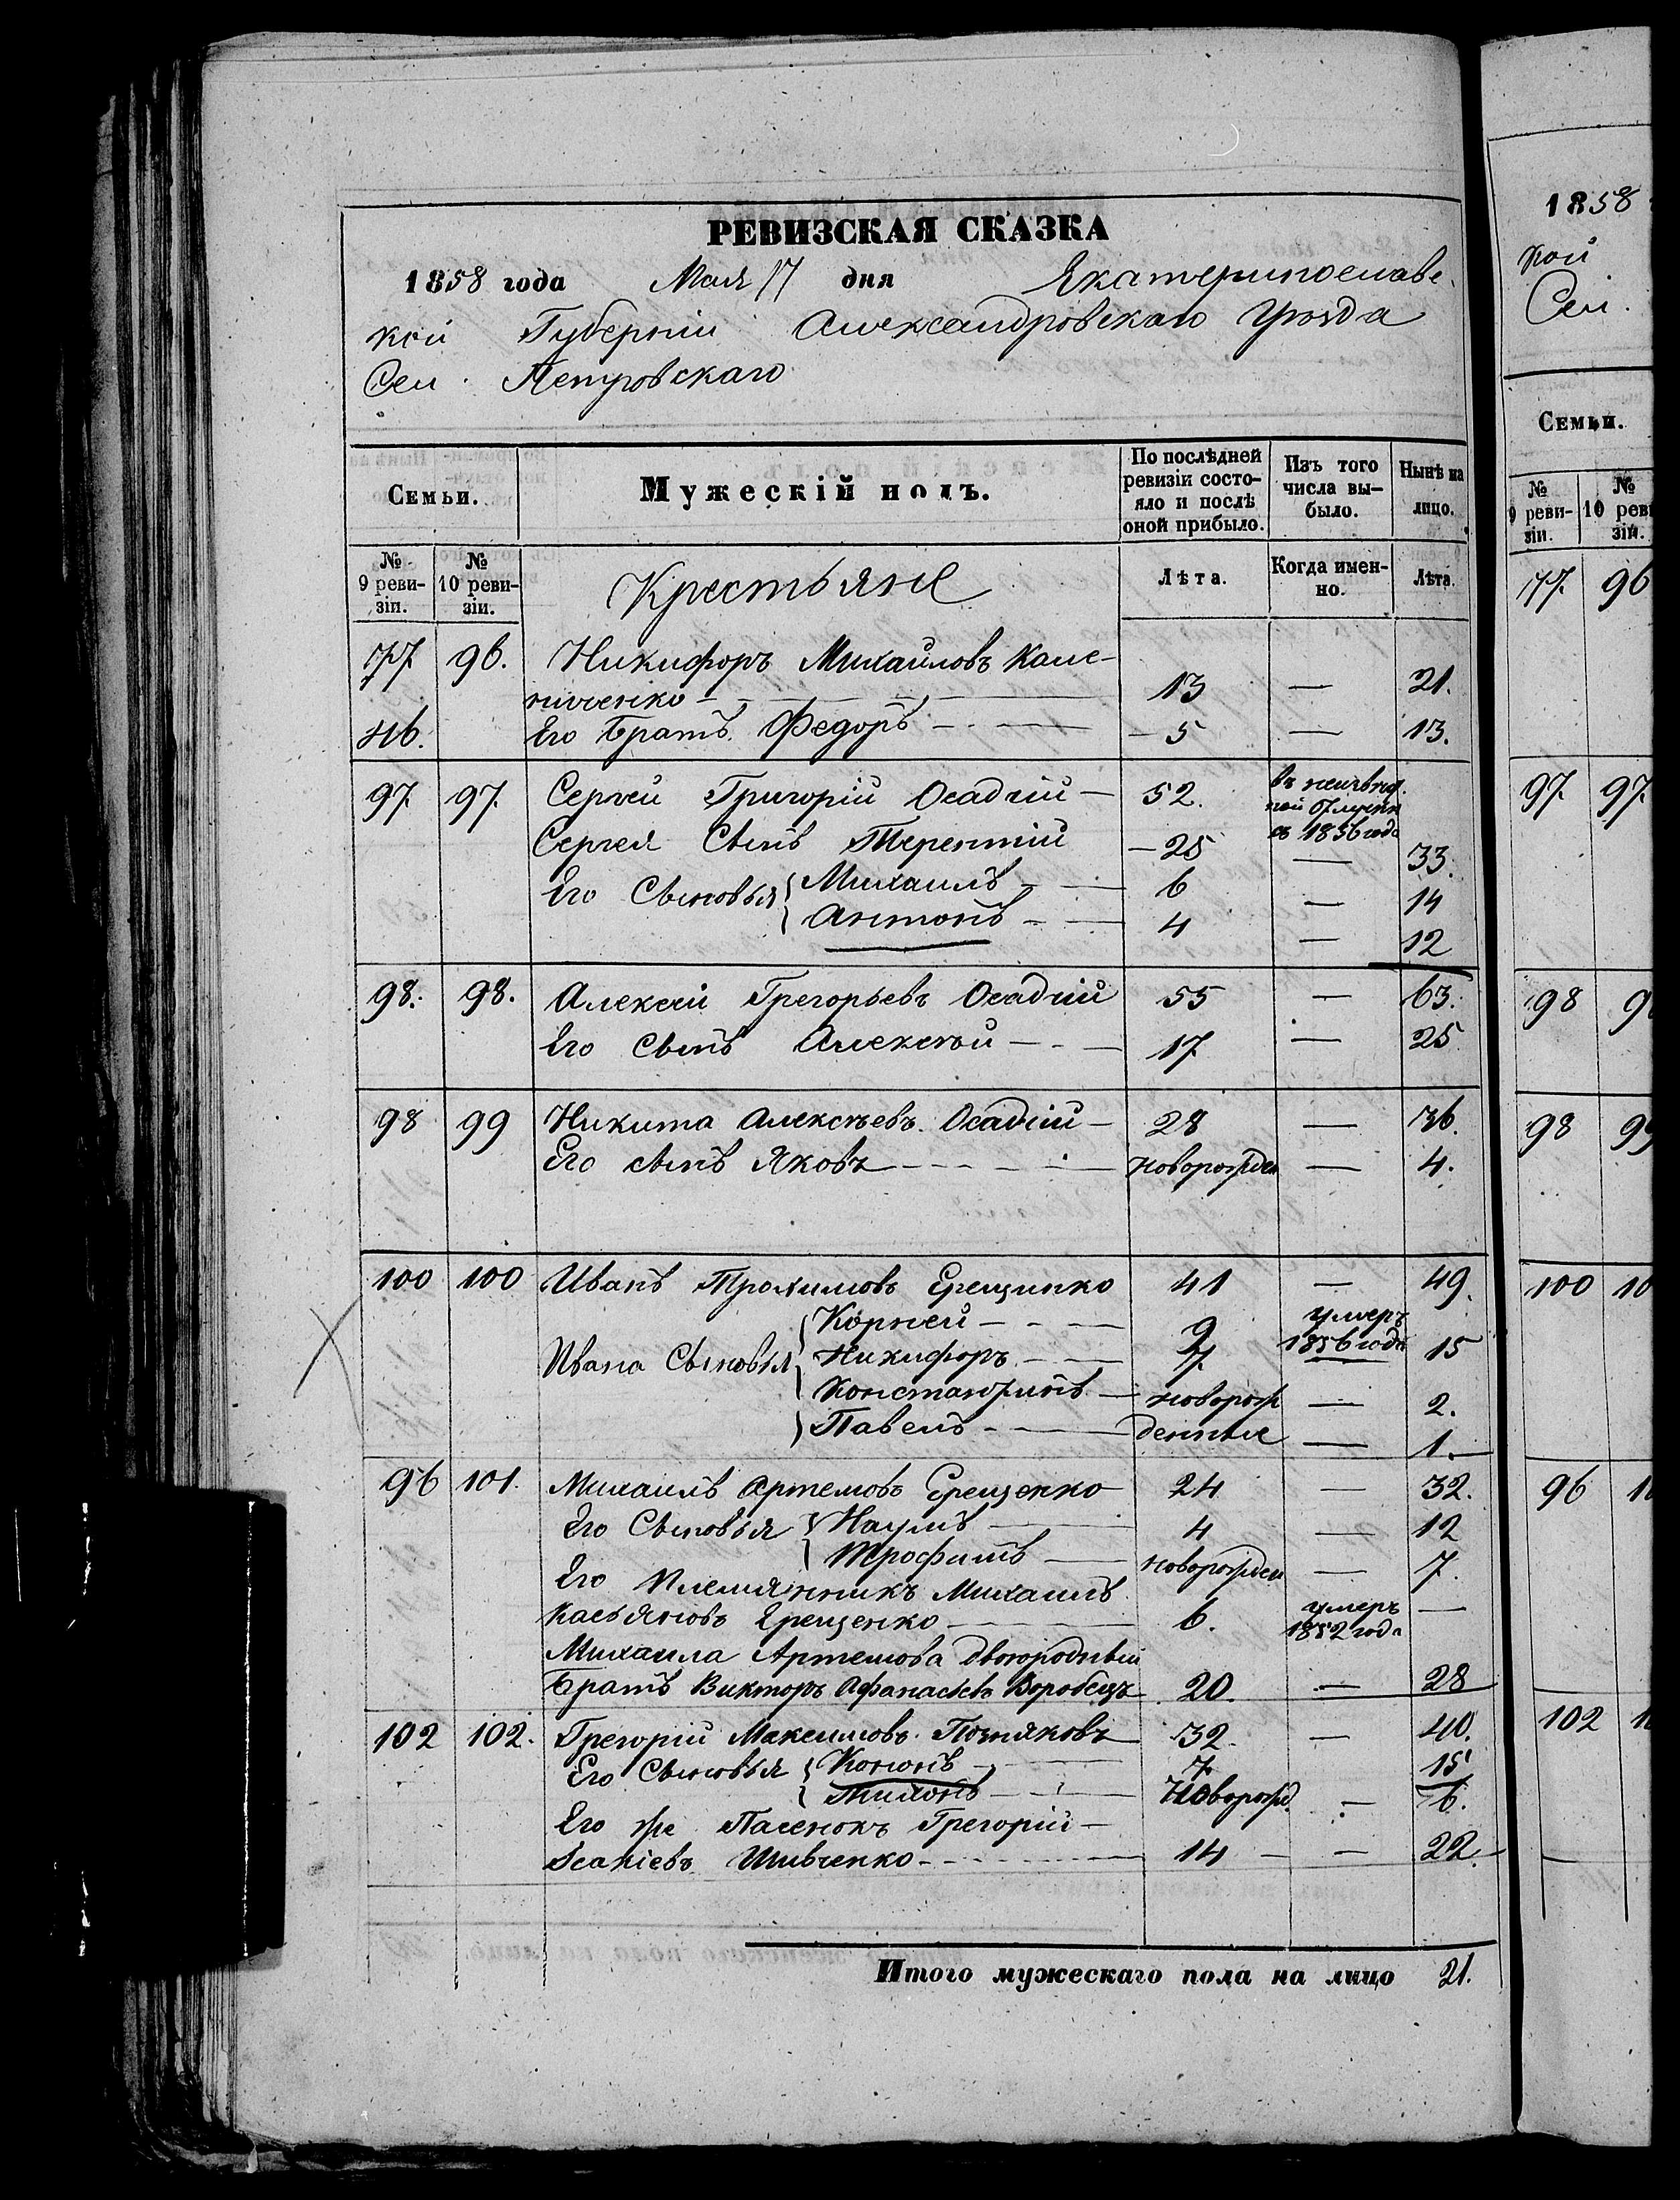 РЕВИЗСКАЯ СКАЗКА
1858 года Мая 17 дня Екатеринославс
кой Губерніи Александровскаго Уѣзда
Сел. Петровскаго
Семьи. Мужескій полъ. По послѣдней ревизіи состояло и послѣ оной прибыло. Изъ того числа выбыло. Нынѣ на лицо.
№ 9 ревизіи. № 10 ревизіи. Крестьяне Лѣта. Когда именно. Лѣта.
77 96. Никифоръ Михайловъ Кале-
ниченко 13 — 21.
46. Его Братъ Федоръ 5 — 13.
97 97. Сергѣй Григорій Осадчій 52. въ
съ 1856 года
Сергея Сынъ Терентій 25 — 33.
Его Сыновья Михаилъ 6 — 14
Антонъ 4 — 12
98. 98. Алексѣй Грегорьевъ Осадчій 55 — 63.
Его Сынъ Алексѣй 17 — 25
98 99 Никита Алексѣевъ Осадчій 28 — 36.
Его сынъ Яковъ новорожден — 4.
100 100 Иванъ Трохимовъ Ерещинко 41 — 49.
Ивана Сыновья Корней 9 умеръ 1856 года
Никифоръ 7 15
Константинъ новорож — 2.
Павелъ денные — 1.
96 101. Михаилъ Артемовъ Ерещенко 24 — 32.
Его Сыновья Наумъ 4 — 12
Трофимъ новорожден — 7.
Его Племянникъ Михаилъ
Касьяновъ Ерещенко 6. умеръ 1852 года —
Михаила Артемова двоюродный
Братъ Викторъ Афанасьевъ Воробецъ 20. — 28
102 102. Грегорій Максимовъ Позняковъ 32 — 40.
Его Сыновья Кононъ 7. 15
Тихонъ Новорожд. — 6.
Его же Пасенокъ Грегорій
Ісакіевъ Шивченко 14 — 22.
Итого мужескаго пола на лицо 21.
1858
кой
Сел.
Семьи.
№ 9 ревизіи. № 10 реви зіи.
77. 96
97. 97.
98
98 99
100 10
96 10
102 1